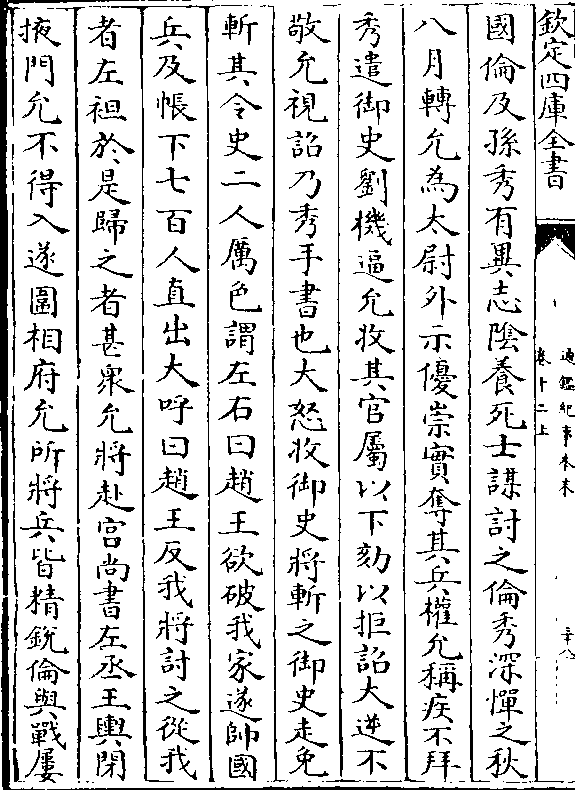 欽定四庫全書
通鑑紀事本末
卷十二上
國倫及孫秀有異志陰養死士謀討之倫秀深憚之秋
八月轉允為太尉外示優崇實奪其兵權允稱疾不拜
秀遣御史劉機逼允收其官屬以下劾以拒詔大逆不
敬允視詔乃秀手書也大怒收御史將斬之御史走免
斬其令史二人厲色謂左右曰趙王欲破我家遂帥國
兵及帳下七百人直出大呼曰趙王反我將討之從我
者左袒於是歸之者甚衆允將赴宫尚書左丞王輿閉
掖門允不得入遂圍相府允所將兵皆精鋭倫與戰屢